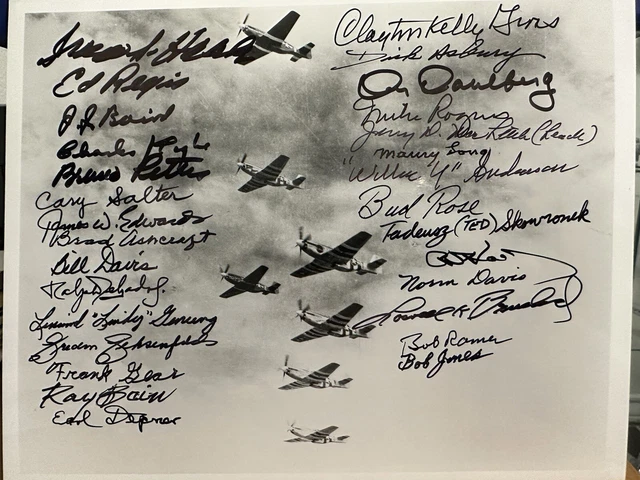 Ed Regis
J R Baird
Charles Kyle
Bruno
Cary Salter
James W. Edwards
Brad Ashcraft
Bill Davis
Ralph
Linwind "Lindy" Genung
"Frank" Gear
Ray Bain
Earl Depner
Clayton Kelly Gross
Dick Asbury
Dahlberg
Mike Rogers
Jerry D. (Leach)
Maury Long
"Willie Y" Anderson
Bud Rose
Tadeusz (TED) Skowronek
Norm Davis
Bob Ramer
Bob Jones